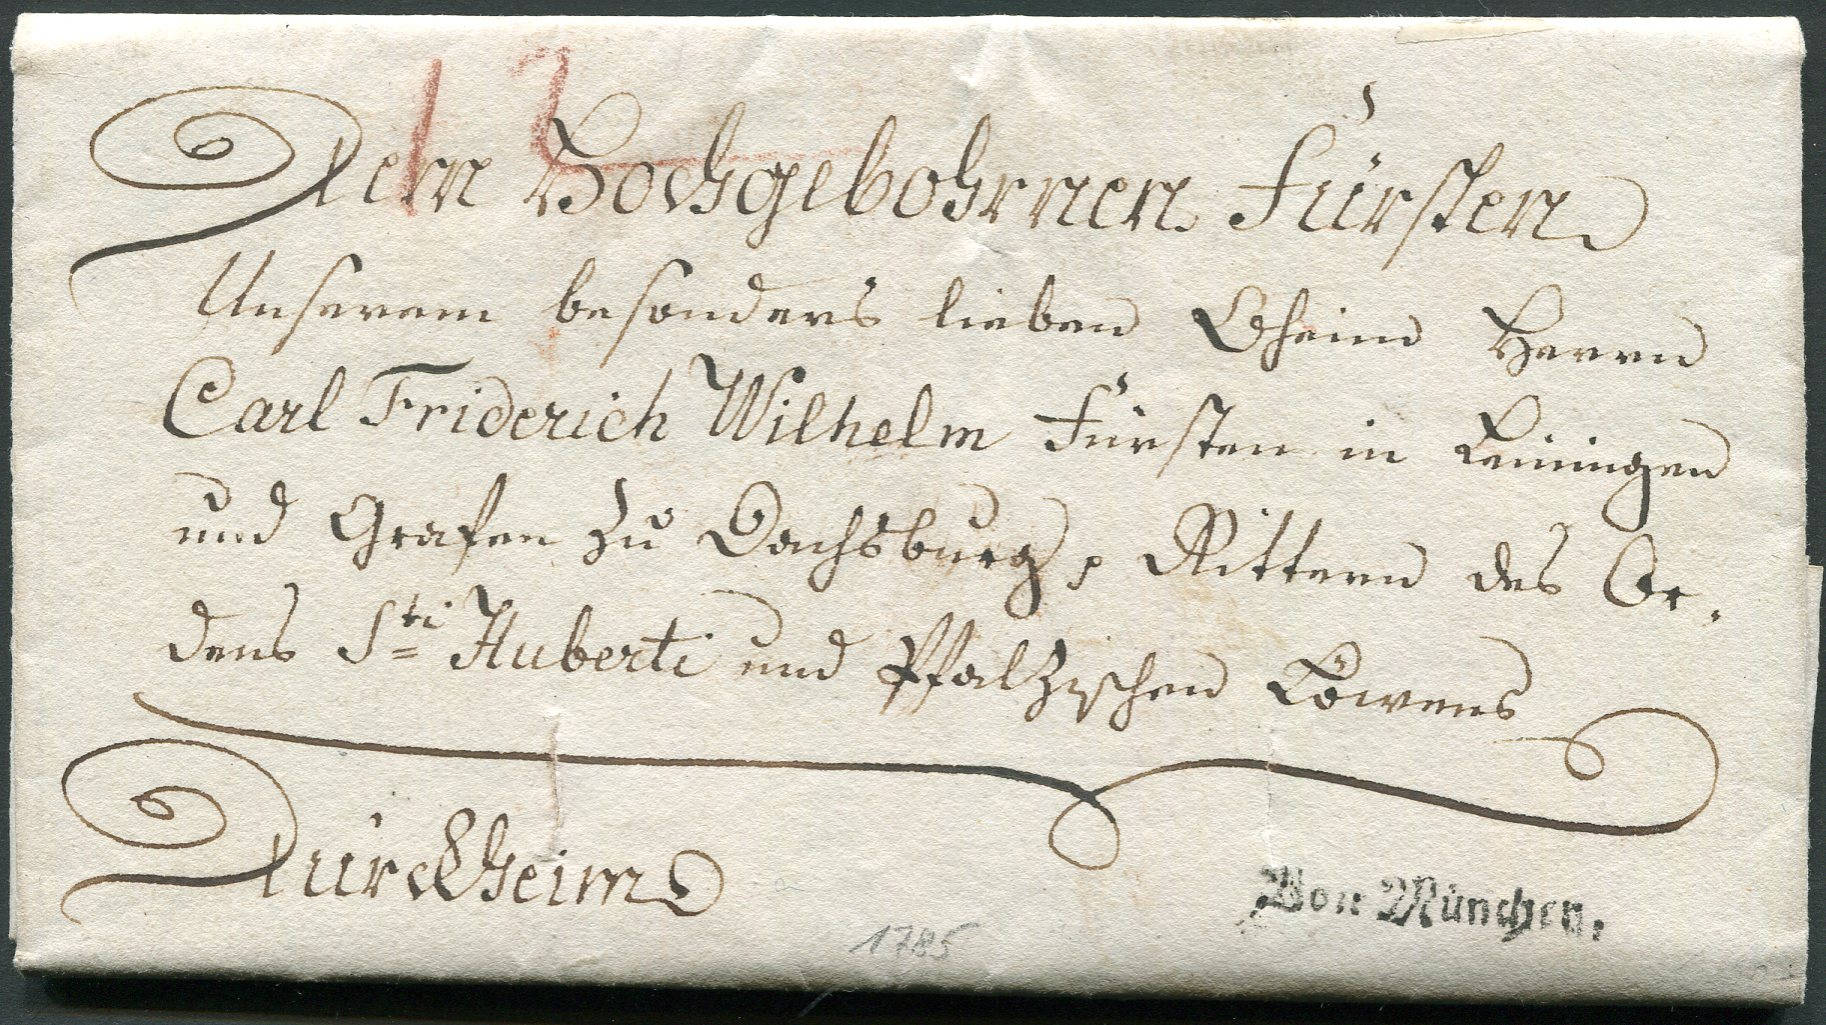 12
Dem Hochgebohrnen Fürsten
Unserem besonders lieben Oheim Herrn
Carl Friderich Wilhelm Fürsten in Leiningen
und Grafen zu Dachsburg, Rittern des Or-
dens Sti Huberti und Pfalzischen Löwens
Dürckheim
Von München.
1785